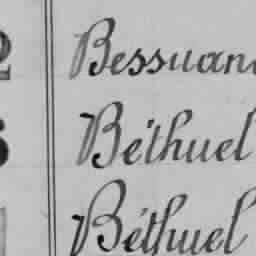 Bessuan
Béthuel
Béthuel